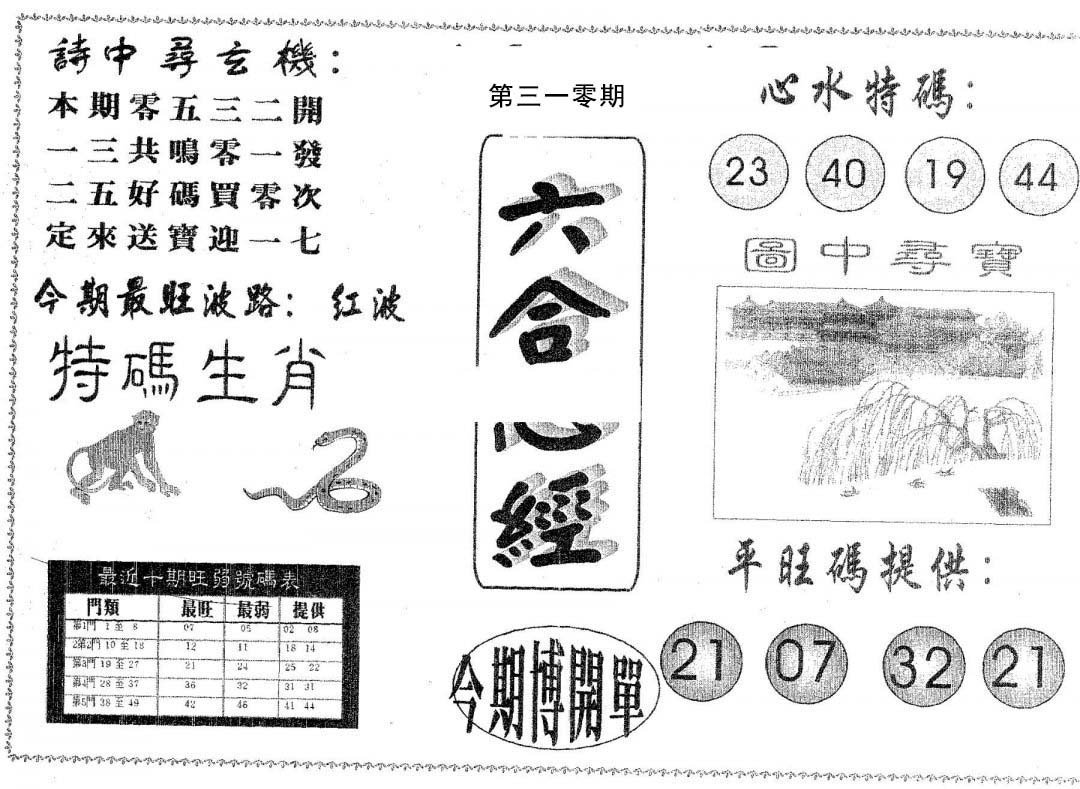 詩中尋玄機：
本期零五三二開
一三共鳴零一發
二五好碼買零次
定來送寶迎一七
今期最旺波路：紅波
特碼生肖
最近十期旺弱號碼表
門類 最旺 最弱 提供
第1門 1 至 8 07 05 02 08
2第2門 10 至 18 12 11 18 14
第3門 19 至 27 21 24 25 22
第4門 28 至 37 36 32 31 31
第5門 38 至 49 42 46 41 44
第三一零期
六合心經
今期博開單
心水特碼：
23 40 19 44
圖中尋寶
平旺碼提供：
21 07 32 21